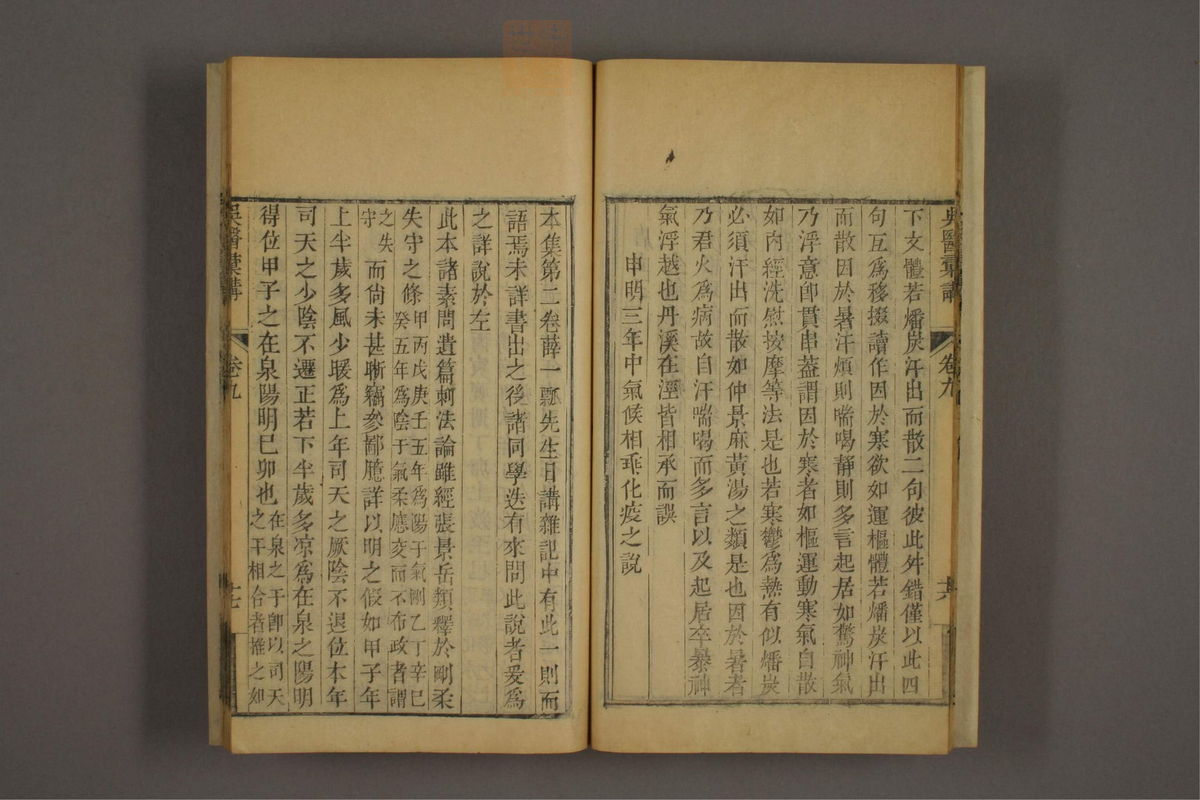 吳醫彙講
卷九
下文體若燔炭汗出而散二句彼此舛錯僅以此四
句互爲移掇讀作因於寒欲如運樞體若燔炭汗出
而散因於暑汗煩則喘喝靜則多言起居如驚神氣
乃浮意卽貫串蓋謂因於寒者如樞運動寒氣自散
如內經洗慰按摩等法是也若寒鬱爲熱有似燔炭
必須汗出而散如仲景麻黃湯之類是也因於暑者
乃君火爲病故自汗喘喝而多言以及起居卒暴神
氣浮越也丹溪在涇皆相承而誤
申明三年中氣候相乖化疫之說
本集第二卷薛一瓢先生日講雜記中有此一則而
語焉未詳書出之後諸同學迭有來問此說者爰爲
之詳說於左
此本諸素問遺篇刺法論雖經張景岳類釋於剛柔
失守之條甲丙戊庚壬五年爲陽干氣剛乙丁辛己
癸五年爲陰干氣柔應交而不布政者謂
之失
守
而尙未甚晰竊參鄙臆詳以明之假如甲子年
上半歲多風少暖爲上年司天之厥陰不退位本年
司天之少陰不遷正若下半歲多凉爲在泉之陽明
得位甲子之在泉陽明己卯也在泉之干卽以司天
之干相合者推之如
吳醫彙講
卷九
十七